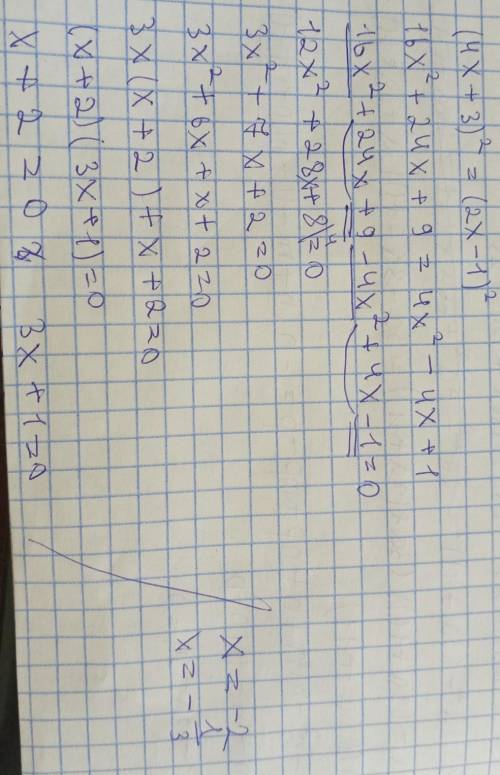 (4x+3)² = (2x-1)²
16x² + 24x + 9 = 4x² - 4x + 1
16x² + 24x + 9 - 4x² + 4x - 1 = 0
12x² + 28x + 8 = 0 |4
3x² + 7x + 2 = 0
3x² + 6x + x + 2 = 0
3x(x+2) + x + 2 = 0
(x+2)(3x+1) = 0
x + 2 = 0 3x + 1 = 0
x = -2
x = -1/3